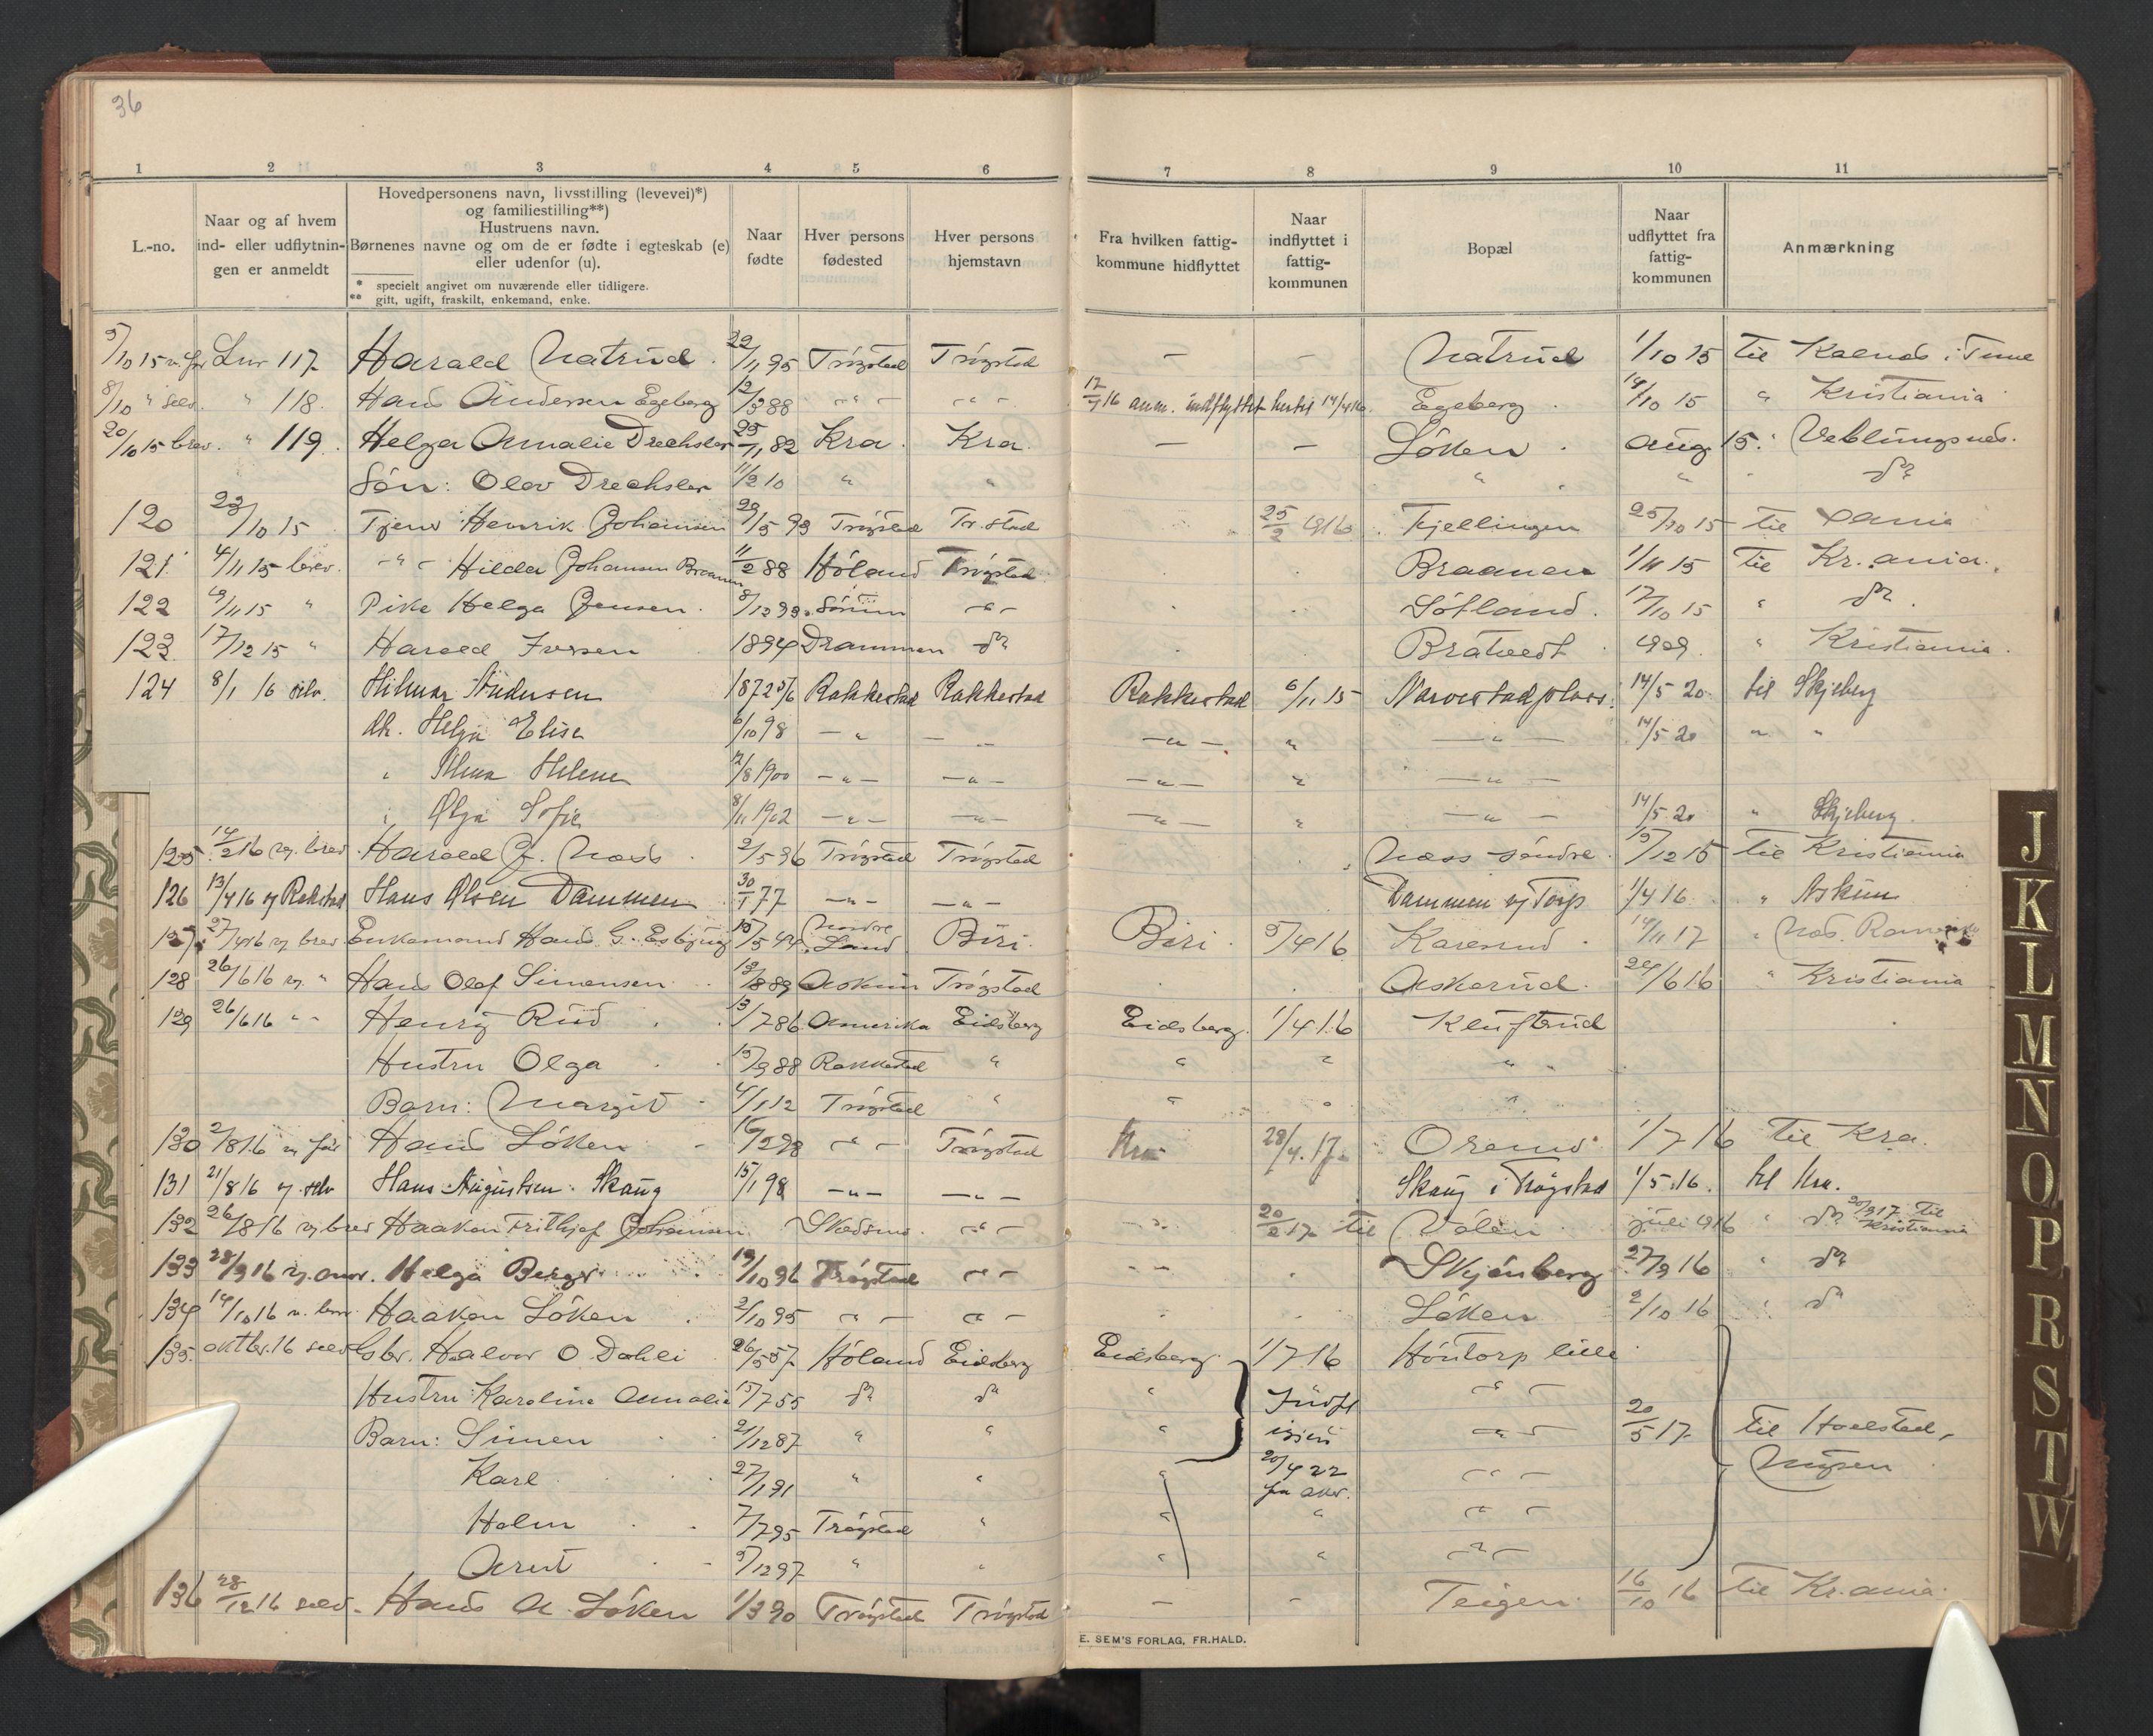 36
1 2 3 4 5 6 7 8 9 10 11
L.-no.
Naar og af hvem ind- eller udflytnin- gen er anmeldt
Hovedpersonens navn, livsstilling (levevei)*)
og familiestilling**)
Hustruens navn.
Børnenes navne og om de er fødte i egteskab (e)
eller udenfor (u).
* specielt angivet om nuværende eller tidligere.
** gift, ugift, fraskilt, enkemand, enke.
Naar fødte
Hver persons fødested
Hver persons hjemstavn
Fra hvilken fattig- kommune hidflyttet
Naar indflyttet i fattig- kommunen
Bopæl
Naar udflyttet fra fattig- kommunen
Anmærkning
117 Harald Natrud 22/11 95 Trögstad Trögstad — — Natrud 1/10 15 til i Tune
8/10 " selv. " 118. Hans Andersen Egeberg 12/3 88 -"- -"- 17/4 16 anm. indflyttet hertil 14/4 16. Egeberg 14/10 15 " Kristiania
20/10 15 brev. " 119. Helga Amalie Drechsler 25/1 82 Kra. Kra. — — Löken aug 15. " Veblungsnes.
Sön: Olav Drechsler 11/2 10 " " " " " do
120 23/10 15 Tjener Henrik Johansen 29/5 93 Trögstad Tr.stad 25/2 1916 Kjellingen 25/10 15 til ania
121 4/11 15 brev. -"- Hilda Johansen Braanen 11/2 88 Höland Trögstad Braanen 1/11 15 til Kr.ania.
122 9/11 15 " Pike Helga Jensen. 8/12 93 Sörum -"- Söfland. 17/10 15 " do.
123. 17/12 15 " Harald Iversen 1894 Drammen do Bråtvedt 1909 " Kristiania.
124 8/1 16 selv. Hilmar Andersen 1872 5/6 Rakkestad Rakkestad Rakkestad 6/11 15 Narvestadplass. 14/5 20 til Skjeberg
dtr. Helga Elise 6/10 98 -"- -"- -"- " -"- 14/5 20 " "
" Helene 12/8 1900 -"- -"- -"- " -"-
" Olga Sofie 8/11 1902 -"- -"- -"- " -"- 14/5 20 " Skjeberg.
125 14/2 16 og. brev Harald J. Næss 2/5 96 Trögstad Trögstad Næss söndre 15/12 15 til Kristiania
126 13/4 16 Hans Olsen Dammen 30/1 77 -"- -"- Dammen 1/4 16 " Askim
127. 27/4 16 brev Enkemand Hans G. Nordre Land Biri. Biri. 5/4 16 Karerud 14/11 17 " Nes.
128 26/6 16 " Hans Olaf Simensen 12/8 89 Askim Trögstad Askerud. 24/6 16 " Kristiania
129 26/6 16 " Henry Rud 13/7 86 Amerika Eidsberg Eidsberg. 1/4 16 Kluftrud
Hustru Olga 15/9 88 Rakkestad " " " "
Barn: Margit 4/1 12 Trögstad " " " "
130 2/8 16 Hans Löken 16/2 98 -"- Trögstad Kra 28/4. 17. 1/7 16 til Kra.
131 21/8 16 selv Hans Augustsen Skaug 15/1 98 -"- -"- Skaug i Trögstad 1/5 16. til Kra.
132 26/8 16 brev Haakon Frithjof Johansen Skedsmo. -"- -"- 20/2 17 til Volen juli 1916 " do 20/3 17 til Kristiania
133 28/9 16 Helga Berger 19/10 96 Trögstad -"- -"- Skjönberg 27/9 16 " do
134 14/10 16 brev Haakon Löken 2/10 95 -"- -"- Löken 2/10 16 " do
135. oktbr. 16 selv Gbr. Halvor O Dahli 26/5 57 Höland Eidsberg Eidsberg. 1/7 16 Höntorp lille
Hustru Karoline Amalie 15/7 55 do do " Indfl -"-
Barn: Simen 21/12 87 " " " igjen -"- 20/5 17 til Hoelstad,
Karl 27/1 91 " " " 20/4 22 -"- Mysen
fra Aker.
Holm 7/7 95 Trögstad " " " -"-
Arnt 5/12 97 " " " " -"-
136 28/12 16 selv. Hans A. Löken 1/3 90 Trögstad Trögstad — — Teigen 16/10 16 til Kr.ania.
E. SEM'S FORLAG, FR.HALD.
J
K
L
M
N
O
P
R
S
T
W